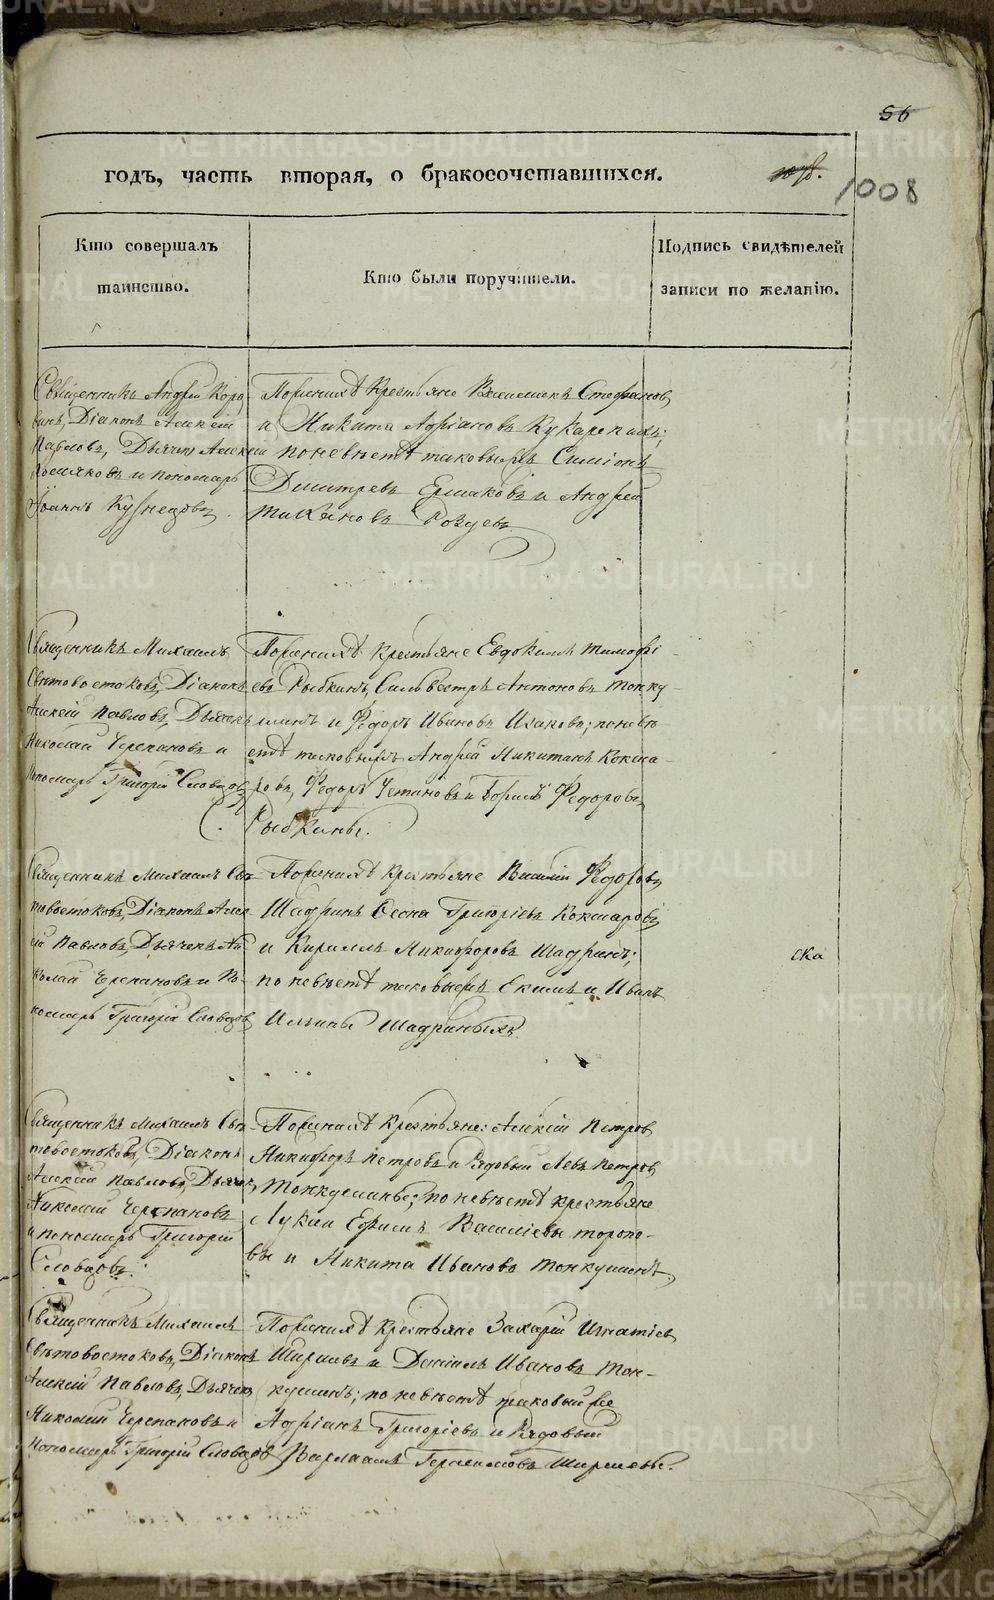 56
годъ, часть вторая, о бракосочетавшихся.
1008
Кто совершалъ
таинство.
Кто были поручители.
Подпись свидѣтелей
записи по желанію.
Священникъ Андрей Коро-
винъ, Діаконъ Алексій
Павловъ, Дьячекъ Алексій
и пономарь
Іоаннъ Кузнецовъ.
По женихѣ крестьяне Стефановъ
и Никита Адріановъ Кукарскихъ;
по невѣстѣ таковыежъ Симіонъ
Дмитревъ Ермаковъ и Андрей
Розуевъ
Священникъ Михаилъ
Свѣтовостоковъ, Діаконъ
Алексій Павловъ, Дьячекъ
Николай Черепановъ и
пономарь Григорій Словцовъ.
По женихѣ крестьяне Евдокимъ Тимофѣ-
евъ Рыбкинъ, Сильвестръ Антоновъ Тонку-
шинъ и Федоръ Ивановъ Исаковъ; по невѣ-
стѣ таковыежъ Андрей Никитинъ Кокша-
ровъ, Федоръ Устиновъ и Борисъ Федоровъ
Рыбкины.
Священникъ Михаилъ Свѣ-
товостоковъ, Діаконъ Алек-
сій Павловъ, Дьячекъ Ни-
колай Черепановъ и По-
номарь Григорій Словцовъ
По женихѣ крестьяне Василій Федоровъ
Шадринъ Григорьевъ Кокшаровъ
и Кириллъ Никифоровъ Шадринъ;
по невѣстѣ таковыежъ Екимъ и Иванъ
Ильины Шадриныхъ.
ска
Священникъ Михаилъ Свѣ-
товостоковъ, Діаконъ
Алексій Павловъ, Дьячекъ
Николай Черепановъ
и пономарь Григорій
Словцовъ.
По женихѣ крестьяне: Алексій Петровъ
Никифоръ Петровъ и рядовый Левъ Петровъ
Тонкушины; по невѣстѣ крестьяне
Лукія Ефимъ Василіевы торопо-
вы и Никита Ивановъ Тонкушинъ.
Священникъ Михаилъ
Свѣтовостоковъ, Діаконъ
Алексій Павловъ, Дьячекъ
Николай Черепановъ и
пономарь Григорій Словцовъ
По женихѣ крестьяне Захарій Игнатіевъ
Ширшевъ и Даніилъ Ивановъ Тон-
кушинъ; по невѣстѣ таковыйже
Адріанъ Григоріевъ и рядовый
Варлаамъ Герасимовъ Ширшевы.
METRIKI.GASO-URAL.RU